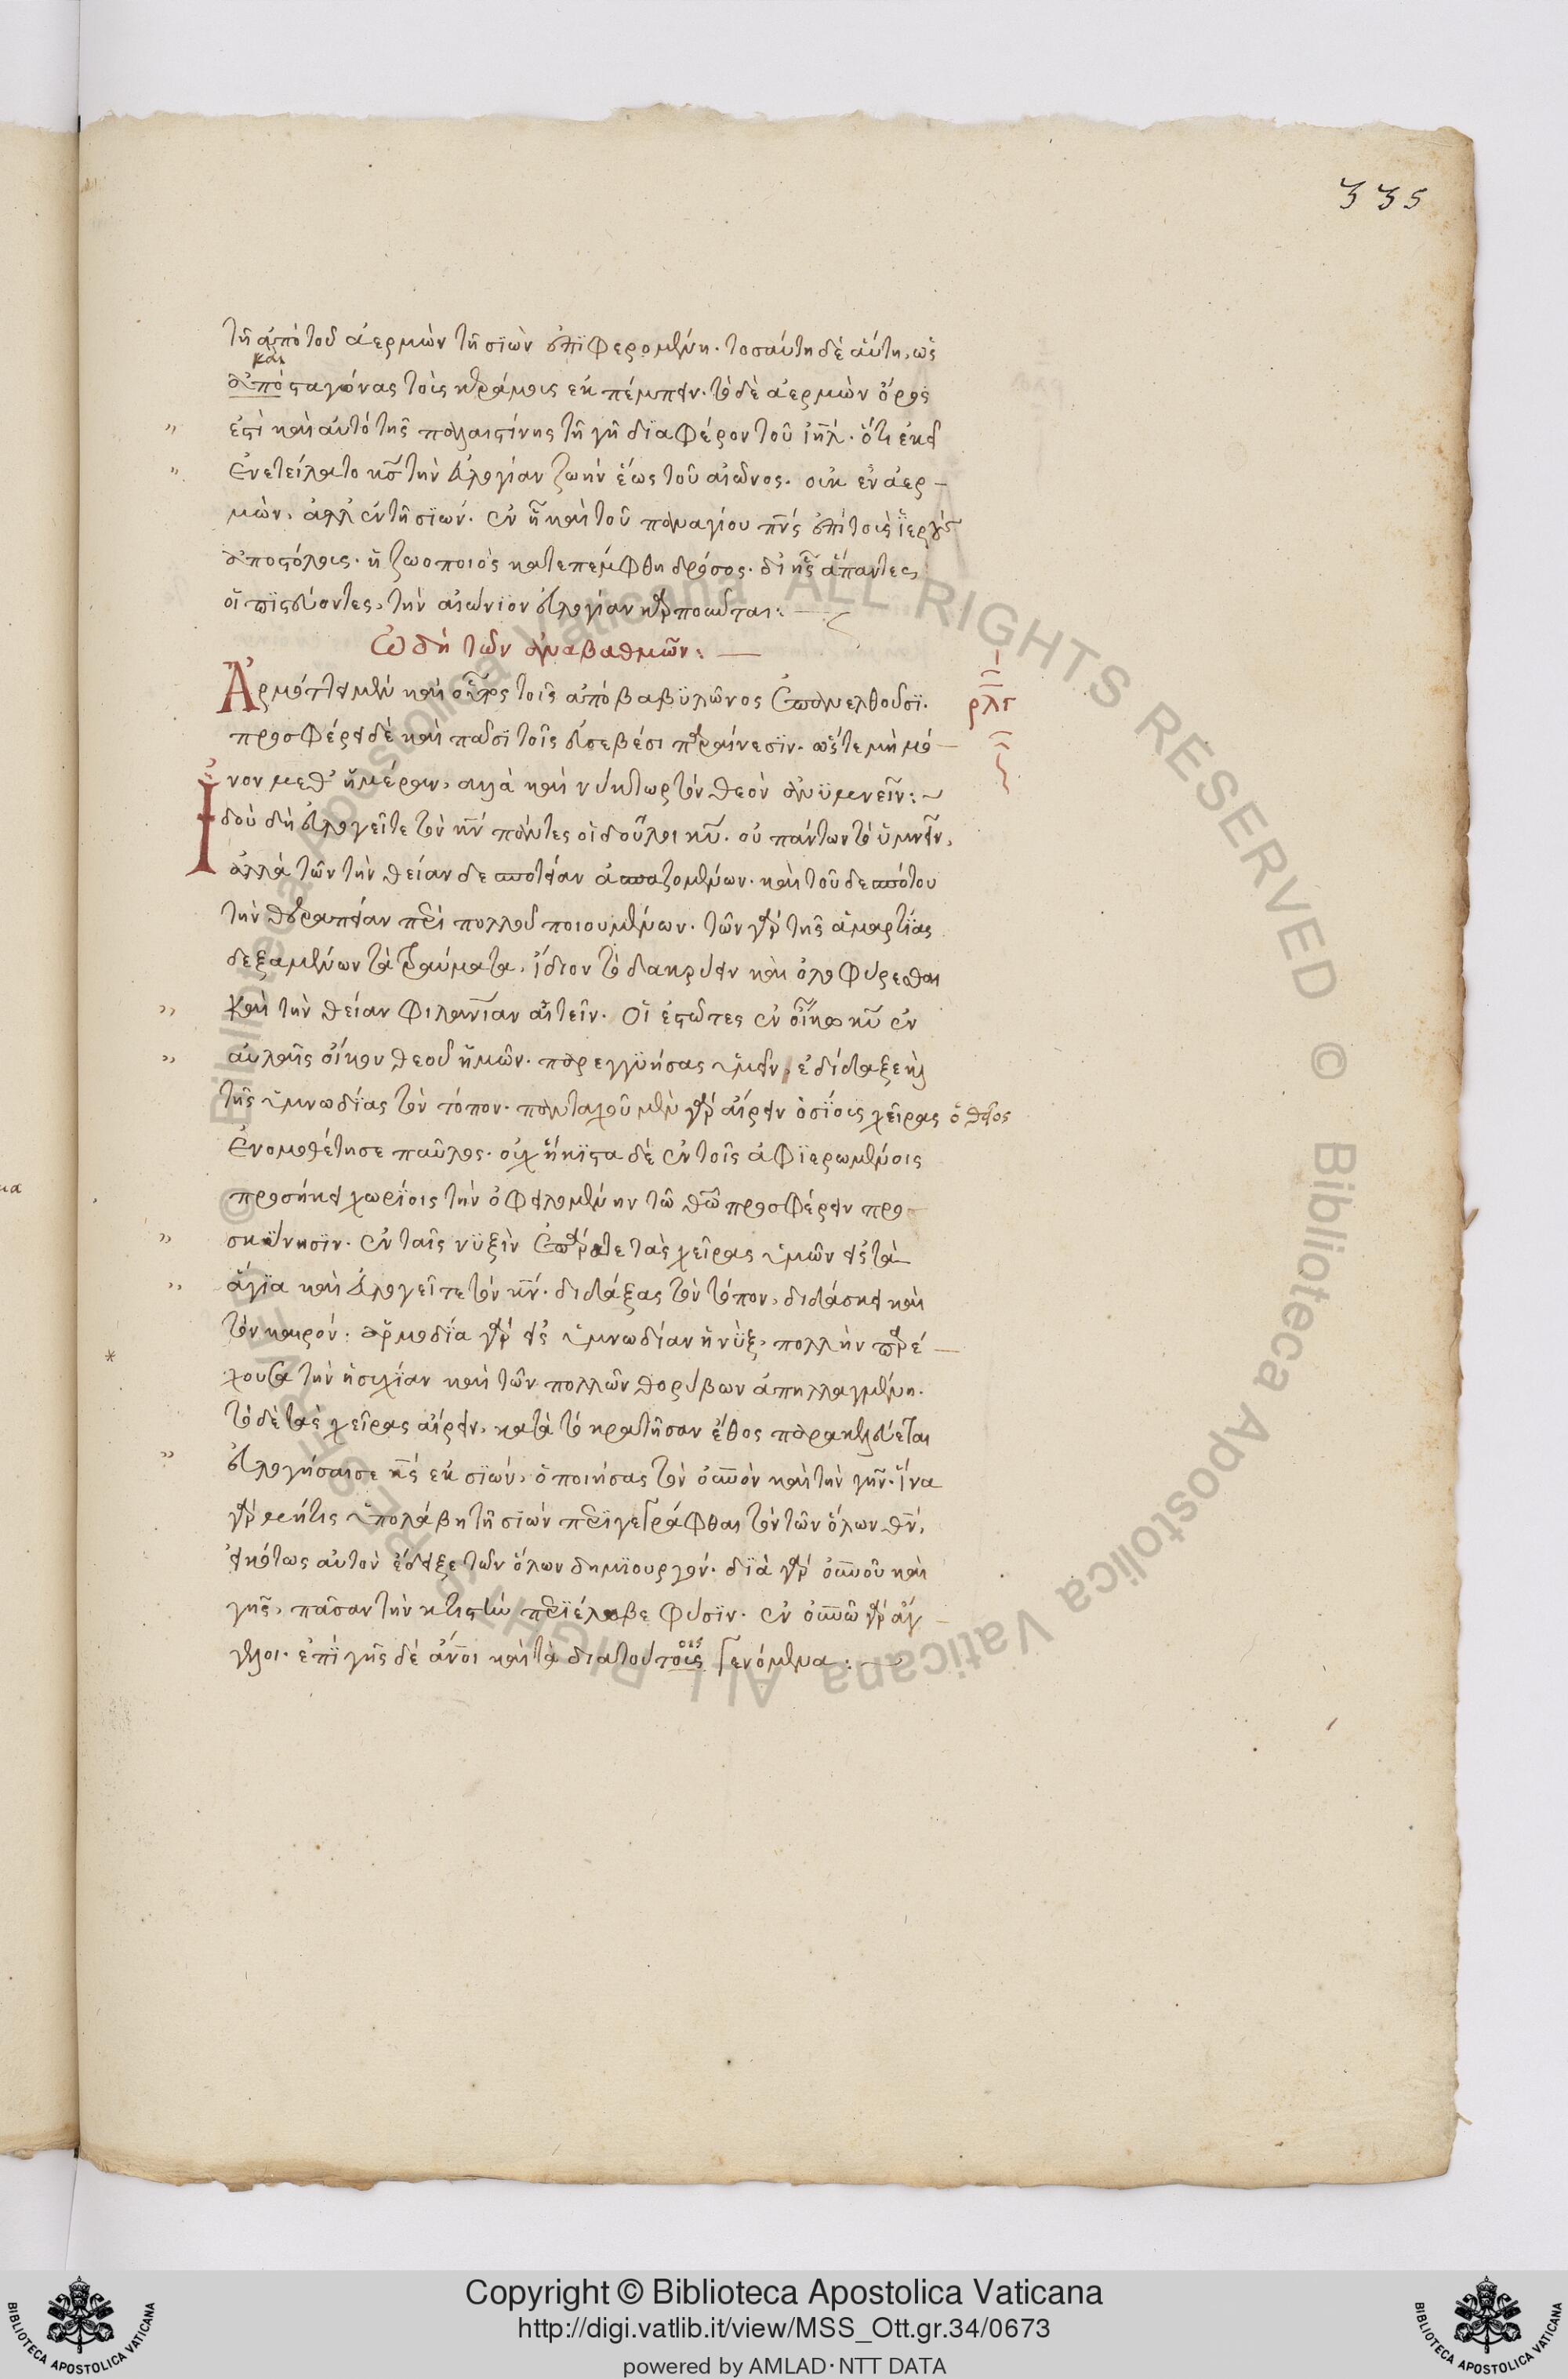 335
τῆ ἀπὸ τοῦ ἀερμὼν τῆ σϊὼν ἐπϊφερομένη· τοσαύτη δὲ αὕτη, ὡς
και
ἀπὸ σταγόνας τοῖς κεράμοις εκπέμπειν· τὸ δὲ ἀερμὼν ὄρος
ἐστὶ καὶ αὐτὸ τῆς παλαιστίνης τῆ γῆ δϊαφέρον τοῦ ἰῆλ· ὅτι ἐκεῖ
ἐνετείλατο κς τὴν εὐλογίαν ζωὴν ἕως τοῦ αἰῶνος· οὐκ ἐν ἀερ–
μὼν, ἀλλ' ἐν τῆ σϊών· ἐν ἧ καὶ τοῦ παναγίου πνς ἐπὶ τοὺς ἱεροὺς
ἀποστόλους· ἡ ζωοποιὸς κατεπέμφθη δρόσος· δι' ἧς ἅπαντες
οἱ πϊστεύοντες, τὴν αἰώνϊον εὐλογίαν καρποῦνται:
Ὠδὴ τῶν ἀναβαθμῶν:
ρλγ
Ἁρμόττει μὲν καὶ οὗτος τοῖς ἀπὸ βαβϋλῶνος ἐπανελθοῦσϊ·
προσφέρει δὲ καὶ πᾶσϊ τοῖς εὐσεβέσι παραίνεσϊν· ὥστε μὴ μό–
νον μεθ' ἡμέραν, αλλὰ καὶ νύκτωρ τὸν θεὸν ἀνϋμνεῖν:
Ἰδοὺ δὴ εὐλογεῖτε τὸν κν πάντες οἱ δοῦλοι κυ· οὐ πάντων τὸ ὑμνεῖν,
ἀλλὰ τῶν τὴν θείαν δεσποτείαν ἀσπαζομένων· καὶ τοῦ δεσπότου
τὴν θεραπείαν περὶ πολλοῦ ποιουμένων· τῶν γὰρ τῆς ἁμαρτϊας
δεξαμένων τὰ τραύματα, ἴδιον τὸ δακρύειν καὶ ὀλοφύρεσθαι
καὶ τὴν θείαν φιλανιαν αἰτεῖν· Οἱ ἑστῶτες ἐν οἴκω κυ ἐν
αὐλαῖς οἴκου θεοῦ ἡμῶν· παρεγγϋήσας ὑμνεῖν, ἐδίδαξε καὶ
τῆς ὑμνωδϊας τὸν τόπον· πανταχοῦ μὲν γὰρ αἴρειν ὁσϊους χεῖρας ὁ θεῖος
ἐνομοθέτησε παῦλος· οὐχ ἥκϊστα δὲ ἐν τοῖς ἀφϊερωμένοις
προσήκει χωρϊοις τὴν ὀφειλομένην τῶ θω προσφέρειν προ–
σκϋνησϊν· ἐν ταῖς νϋξὶν ἐπάρατε τὰς χεῖρας ὑμῶν εἰς τὰ
ἅγϊα καὶ εὐλογεῖτε τὸν κν· διδάξας τὸν τόπον, διδάσκει καὶ
τὸν καιρόν: ἁρμοδϊα γὰρ εἰς ὑμνωδίαν ἡ νὺξ, πολλὴν παρέ–
χουσα τὴν ἡσυχϊαν καὶ τῶν πολλῶν θορύβων ἀπηλλαγμένη·
τὸ δὲ τὰς χεῖρας αἴρειν, κατὰ τὸ κρατῆσαν ἔθος παρακελεύεται
εὐλογήσαι σε κς ἐκ σϊών, ὁ ποιήσας τὸν οὐνον καὶ τὴν γῆν· ἵνα
γὰρ μήτις ὑπολάβη τῆ σϊὼν περϊγεγράφθαι τὸν τῶν ὅλων θν,
εἰκότως αὐτὸν ἔδειξε τῶν ὅλων δημϊουργόν· δϊὰ γὰρ οὐνοῦ καὶ
γῆς, πᾶσαν τὴν κτιστὴν περϊέλαβε φύσϊν· ἐν οὐνῶ γὰρ ἄγ
γελοι· ἐπϊ γῆς δὲ ἄνοι καὶ τὰ δια τούτους γενόμενα:
Copyright © Biblioteca Apostolica Vaticana
http://digi.vatlib.it/view/MSS_Ott.gr.34/0673
powered by AMLAD·NTT DATA